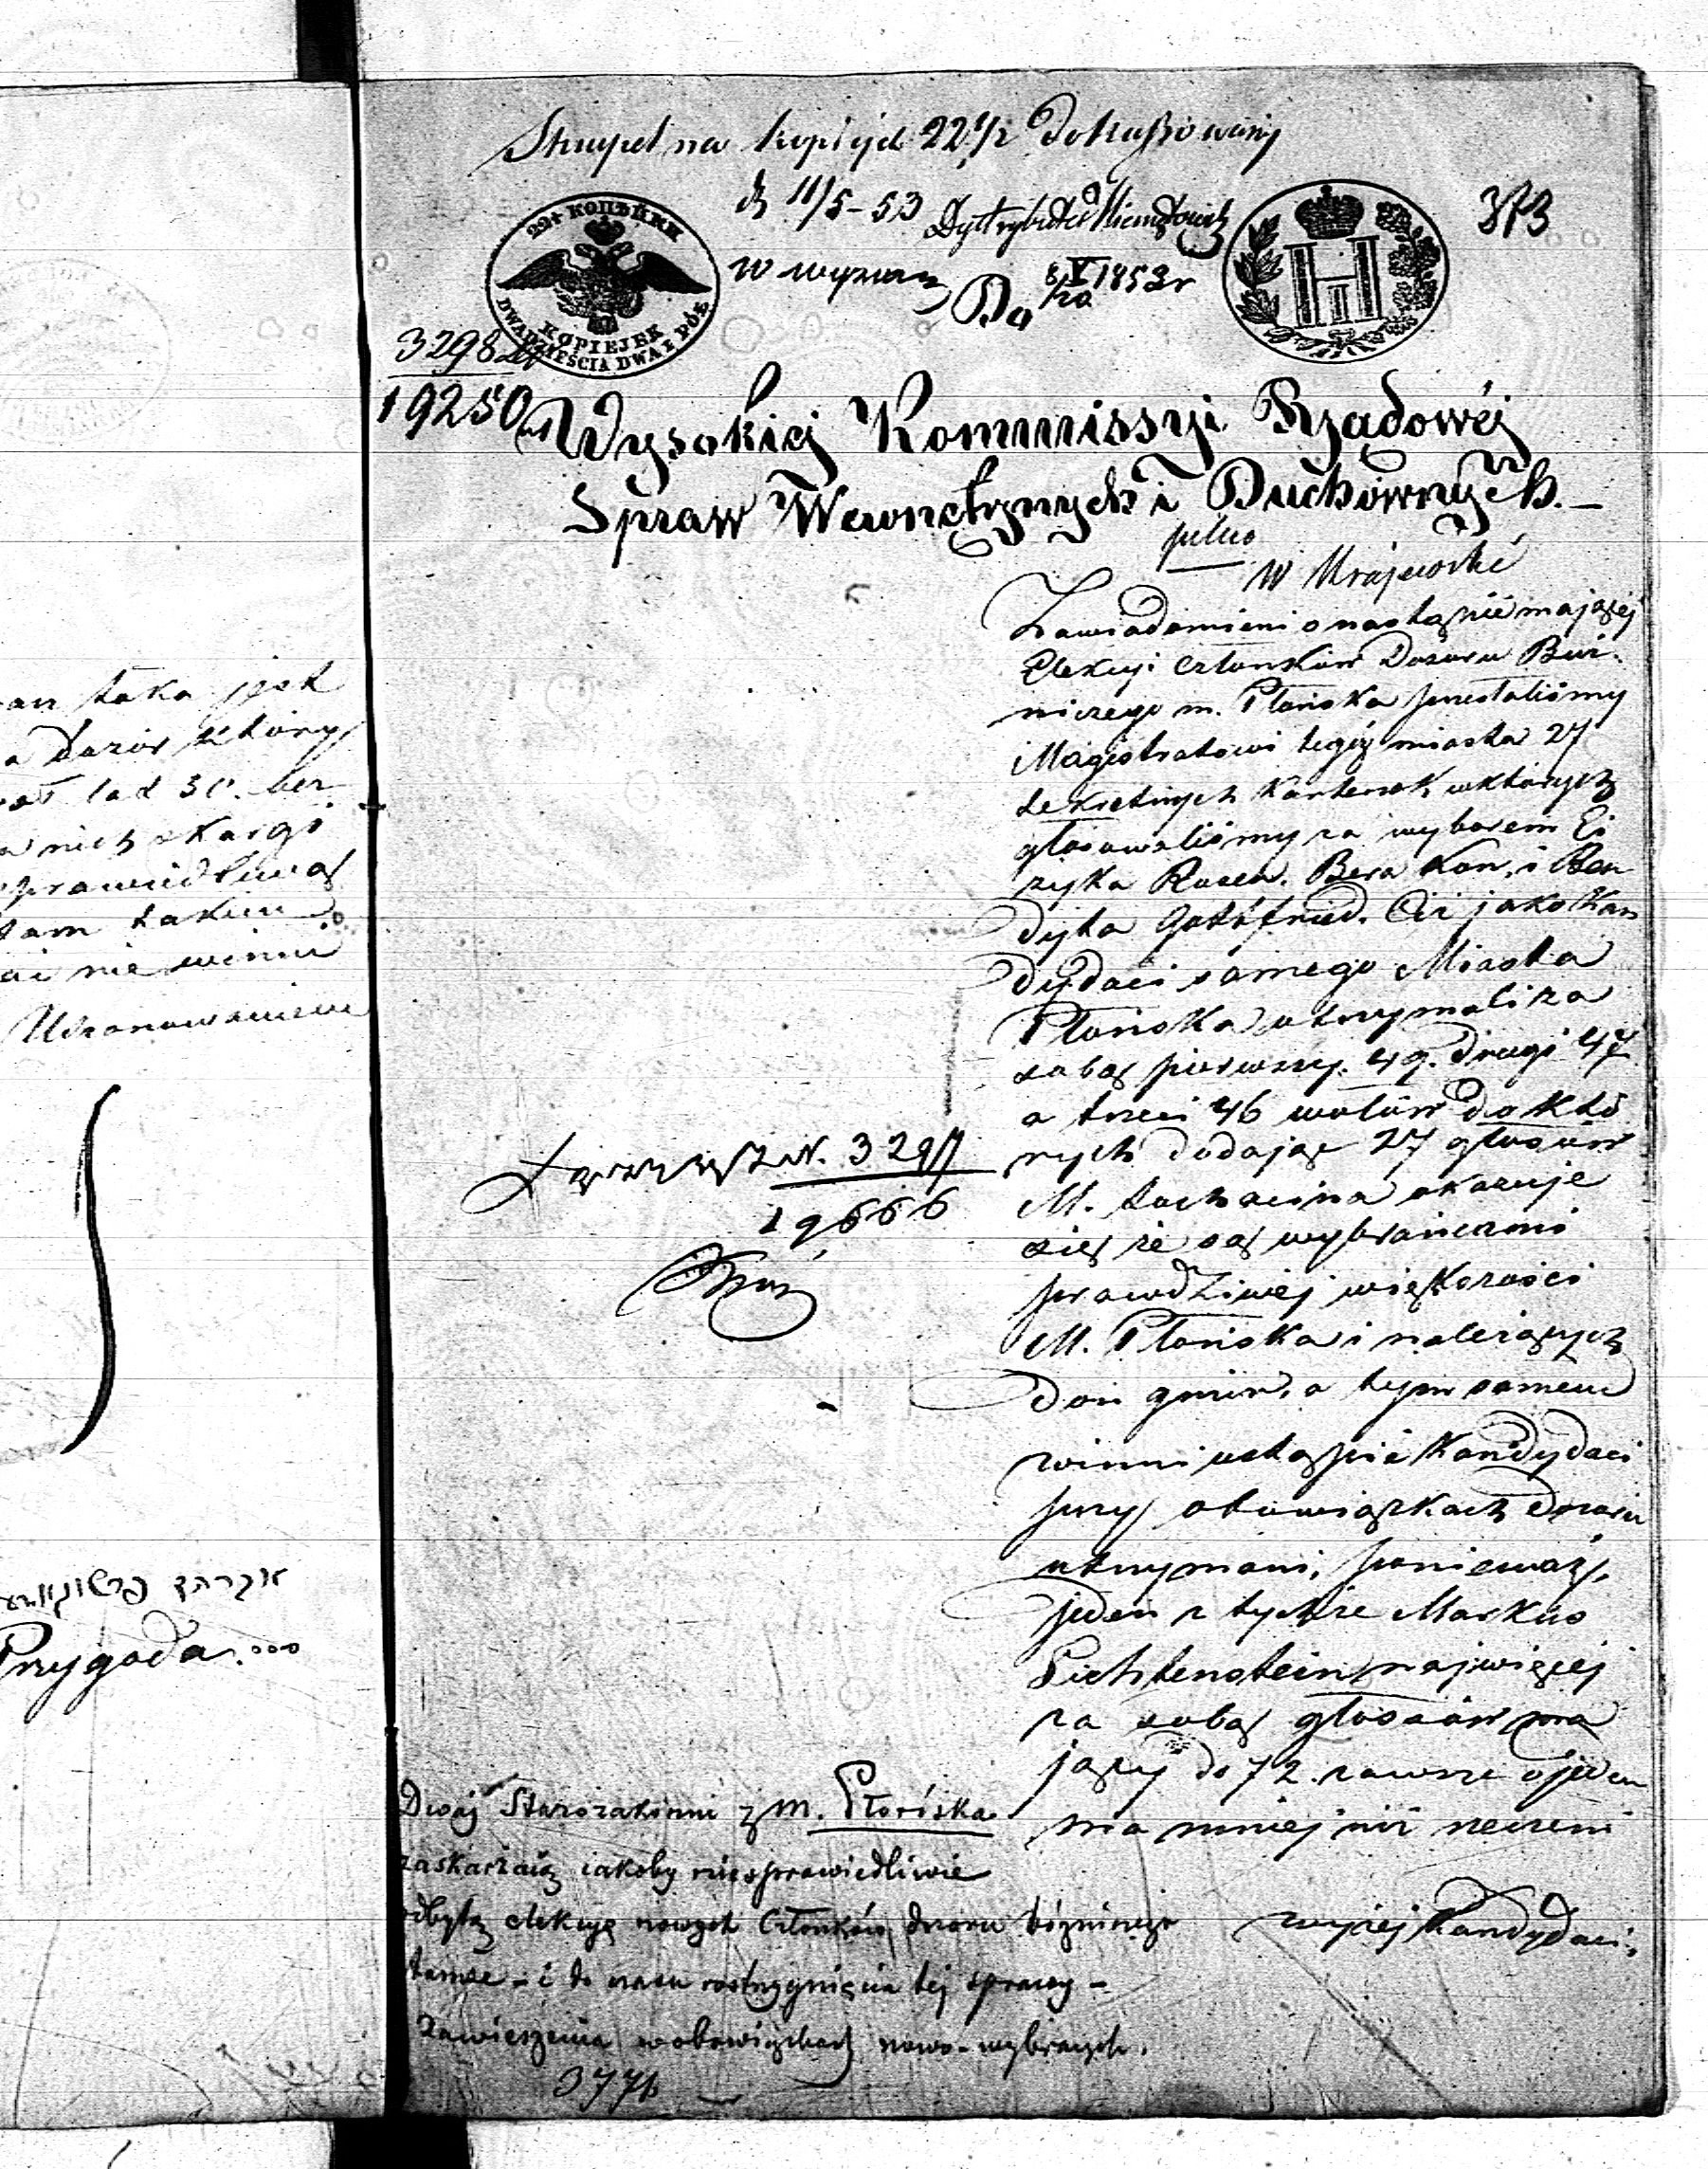 an taka jest
a dozór który
lat 30. bez
nich skargi
sprawiedliwą
tam takim
nie winni
Uszanowaniem
Przygoda....
Stempel na kopiejek 22 1/2 dokassowany
d. 11/5-53 Dystrybutor
373
22½ КОПѢЙКИ
KOPIEJEK
DWADZIEŚCIA DWA I PÓŁ
Н I
Do
V 1853 r
3298
19250
Wysokiej Kommissyi Rządowéj
Spraw Wewnętrznych i Duchownych.-
pilno
Zawiadomieni o nastąpić mającej
Elekcyi członków Dozoru Buż-
niczego m. Płońska przestaliśmy
Magistratowi tegóż miasta 27
sekretnych kartenek w których
głosowaliśmy za wyborem Ei
zyka Rosen. Bera Kon, i Ben
dyta Gotsfried. Ciż jako Kan
dydaci samego Miasta
Płońska utrzymali za
sobą pierwszy. 49. drugi 47
a trzeci 46 wotów do któ
rych dodając 27 głosów
M. Sochocina okazuje
się że są wybrańcami
prawdziwej większości
M. Płońska i należących
doń gmin, a tym samem
winni ustąpić Kandydaci
przy obowiązkach Dozoru
utrzymani, ponieważ,
jeden z tychże Markus
Lichtenstein najwięcej
za sobą głosów ma
jący do 72. zawsze o jeden
ma mniej niż rzeczeni
wyżej Kandydaci,
Łączy się z N. 3297
19666
Dwaj Starozakonni z m. Płońska
zaskarżają iakoby niesprawiedliwie
odbytą elekcyę nowych Członków dozoru bóżniczego
tamże - i do czasu rostrzygnięcia tej sprawy -
Zawieszenia w obowiązkach nowo-wybranych.